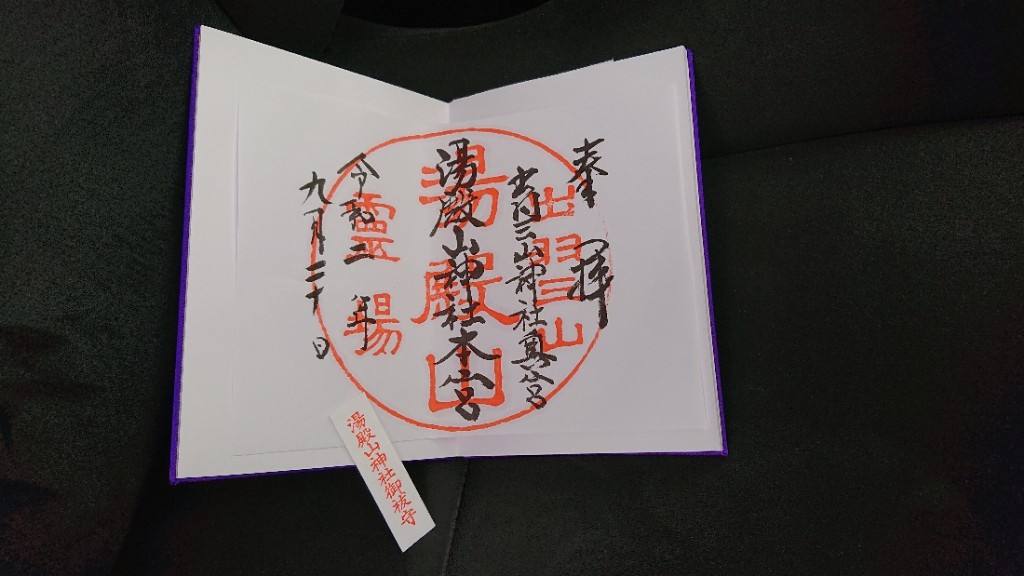 奉拝
出羽三山神社奥宮
湯殿山神社本宮
令和二年
九月二十日
出羽三山
湯殿山
靈場
湯殿山神社御祓守